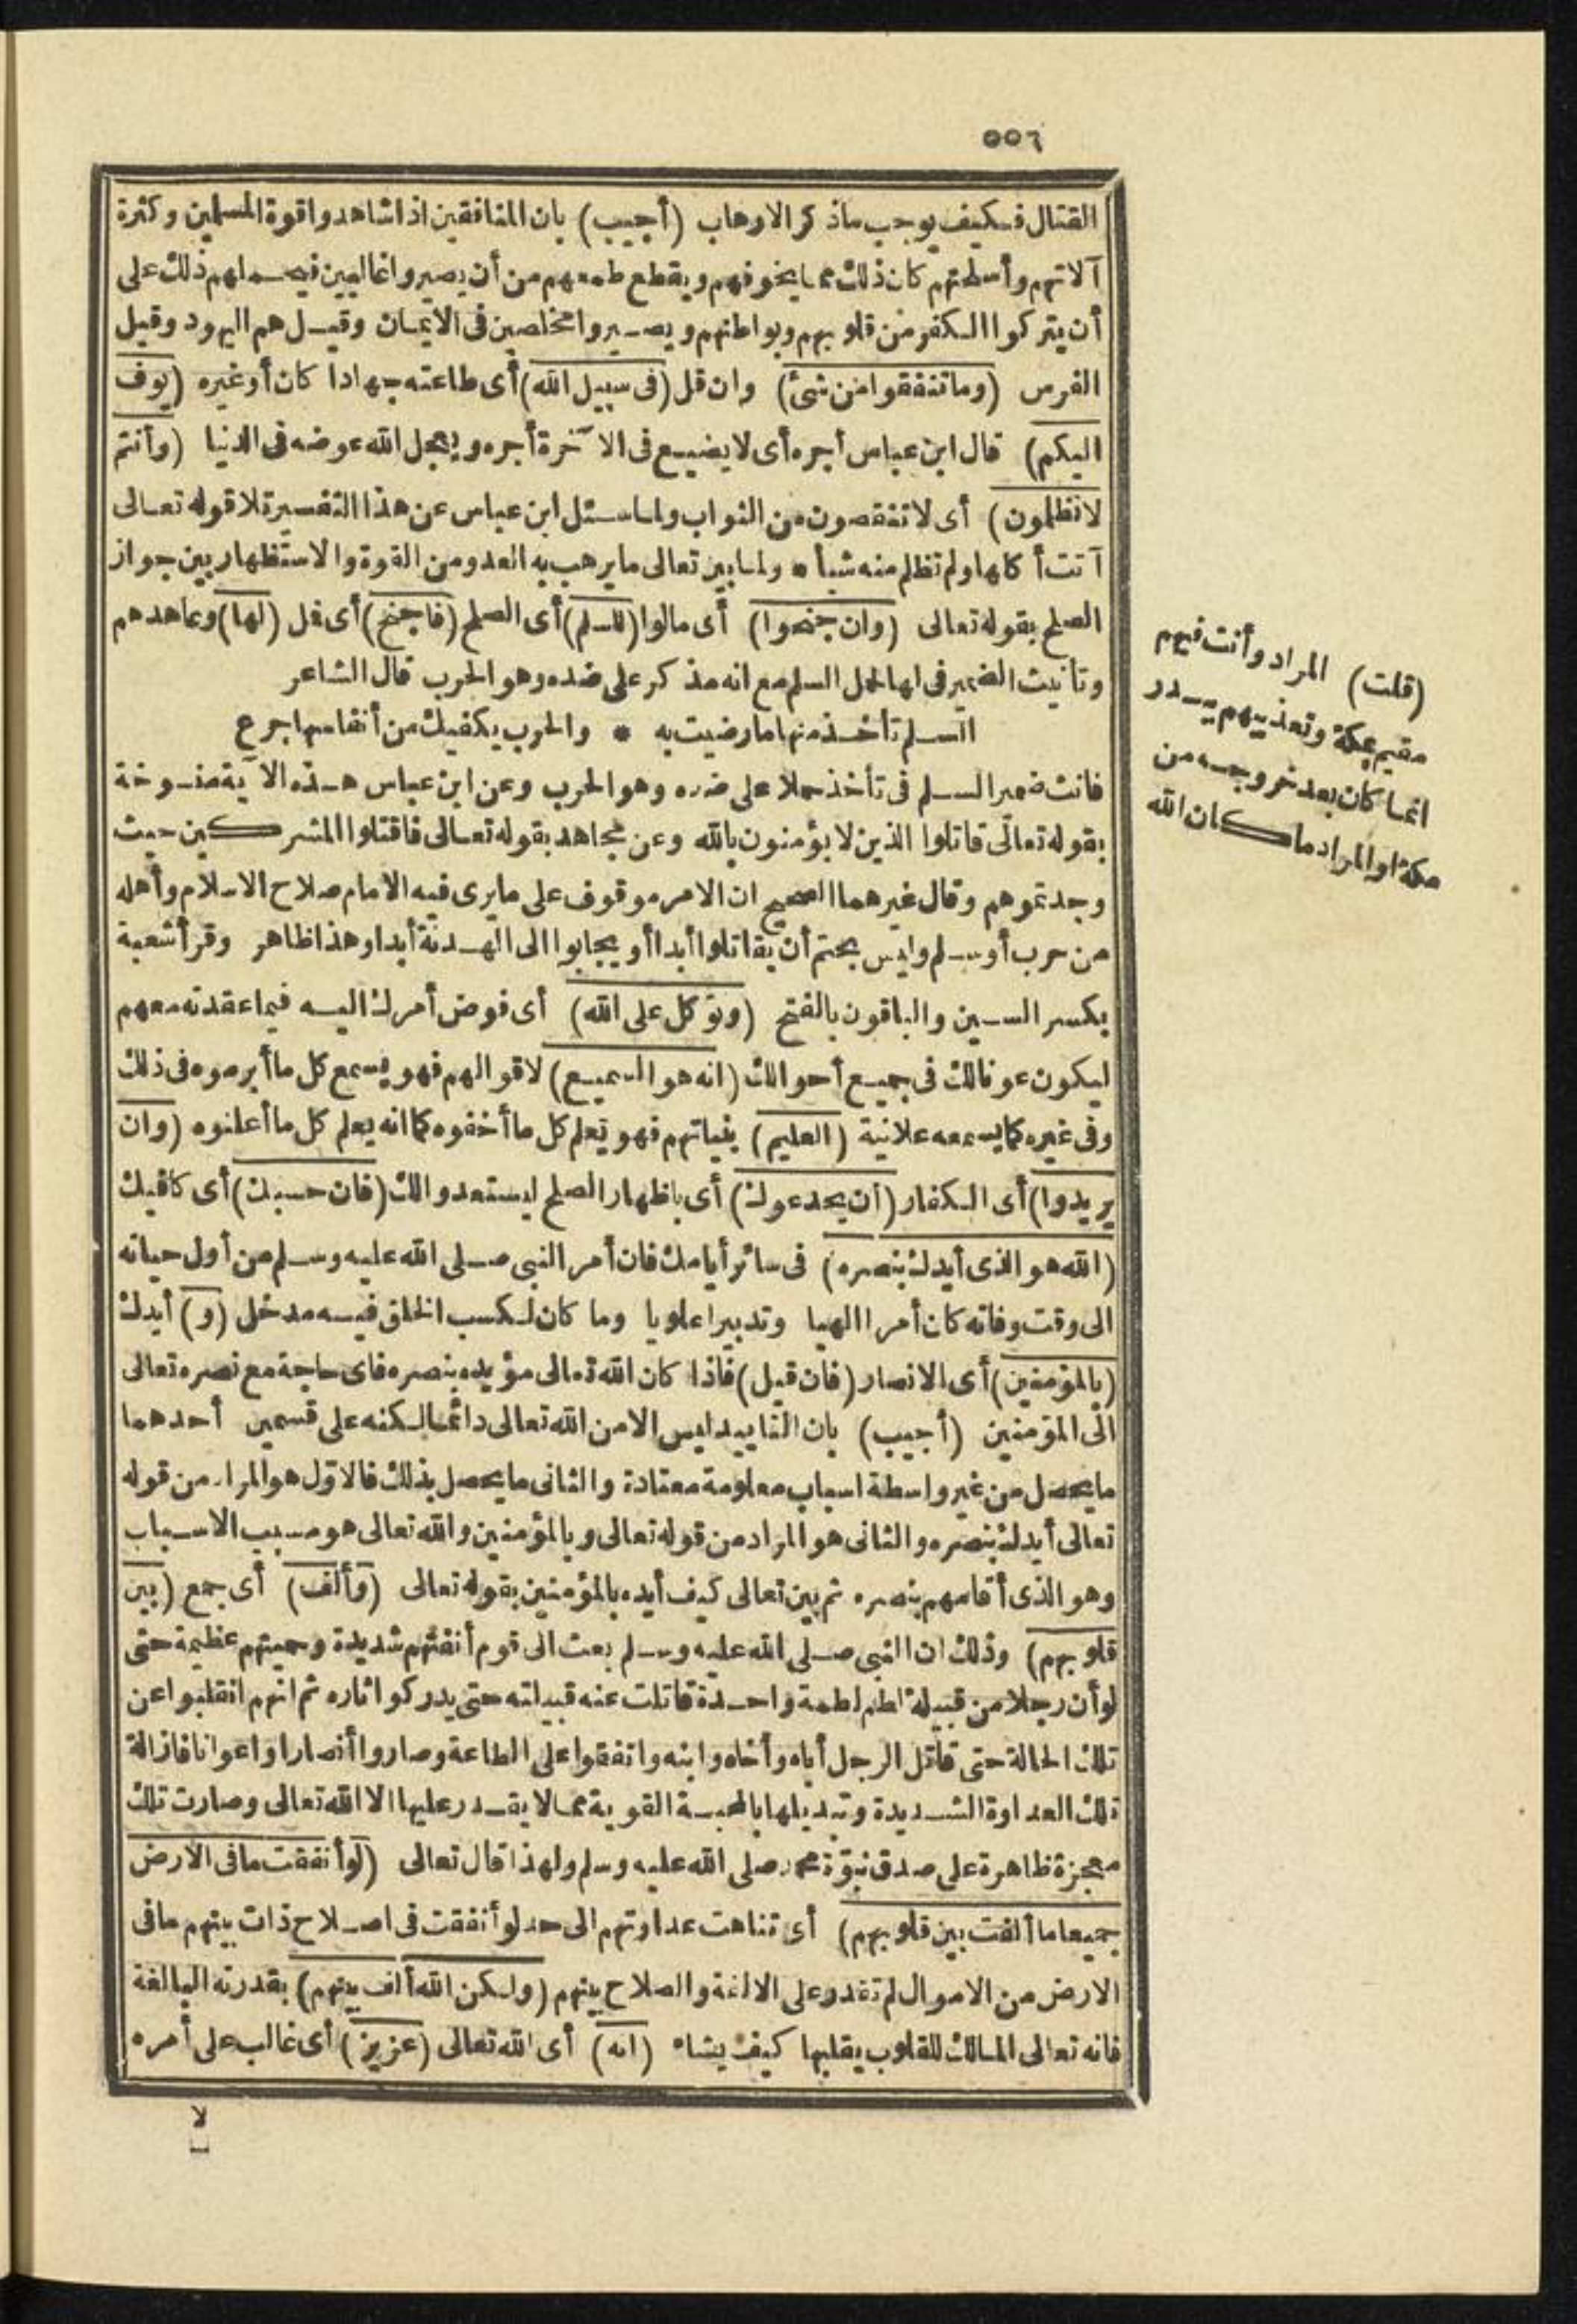 ٥٥٦
القتال فكيف يوجب ماذكر الارهاب (أجيب) بان المنافقين اذا شاهدوا قوة المسلمين وكثرة
آلاتهم وأسلحتهم كان ذلك مما يخوفهم ويقطع طمعهم من أن يصيروا غالبين فيحملهم ذلك على
أن يتركوا الكفر من قلوبهم وبواطنهم ويصيروا مخلصين فى الايمان وقيل هم اليهود وقيل
الفرس (وما تنفقوا من شئ) وان قل (فى سبيل الله) أى طاعته جهادا كان أو غيره (يوف
اليكم) قال ابن عباس أجره أى لا يضيع فى الآخرة أجره ويعجل الله عوضه فى الدنيا (وأنتم
لا تظلمون) أى لا تنقصون من الثواب ولما سئل ابن عباس عن هذا التفسير تلا قوله تعالى
آتت أكلها ولم تظلم منه شيأ * ولما بين تعالى ما يرهب به العدو من القوة والاستظهار بين جواز
الصلح بقوله تعالى (وان جنحوا) أى مالوا (للسلم) أى الصلح (فاجنح) أى فمل (لها) وعاهدهم
وتأنيث الضمير فى لها لحمل السلم مع انه مذكر على ضده وهو الحرب قال الشاعر
السلم تأخذ منها ما رضيت به * والحرب يكفيك من أنفاسها جرع
فانث ضمير السلم فى تأخذ حملا على ضده وهو الحرب وعن ابن عباس هذه الآية منسوخة
بقوله تعالى قاتلوا الذين لا يؤمنون بالله وعن مجاهد بقوله تعالى فاقتلوا المشركين حيث
وجدتموهم وقال غيرهما الصحيح ان الامر موقوف على ما يرى فيه الامام صلاح الاسلام وأهله
من حرب أو سلم وليس بحتم أن يقاتلوا أبدا أو يجابوا الى الهدنة أبدا وهذا ظاهر وقرأ شعبة
بكسر السين والباقون بالفتح (وتوكل على الله) أى فوض أمرك اليه فيما عقدته معهم
ليكون عونا لك فى جميع أحوالك (انه هو السميع) لاقوالهم فهو يسمع كل ما أبرموه فى ذلك
وفى غيره كما يسمعه علانية (العليم) بنياتهم فهو يعلم كل ما أخفوه كما انه يعلم كل ما أعلنوه (وان
يريدوا) أى الكفار (أن يخدعوك) أى باظهار الصلح ليستعدوا لك (فان حسبك) أى كافيك
(الله هو الذى أيدك بنصره) فى سائر أيامك فان أمر النبى صلى الله عليه وسلم من أول حياته
الى وقت وفاته كان أمرا الهيا وتدبيرا علويا وما كان لكسب الخلق فيه مدخل (و) أيدك
(بالمؤمنين) أى الانصار (فان قيل) فاذا كان الله تعالى مؤيده بنصره فاى حاجة مع نصره تعالى
الى المؤمنين (أجيب) بان التأييد ليس الا من الله تعالى دائما لكنه على قسمين أحدهما
ما يحصل من غير واسطة اسباب معلومة معتادة والثانى ما يحصل بذلك فالاول هو المراد من قوله
تعالى أيدك بنصره والثانى هو المراد من قوله تعالى وبالمؤمنين والله تعالى هو مسبب الاسباب
وهو الذى أقامهم بنصره ثم بين تعالى كيف أيده بالمؤمنين بقوله تعالى (وألف) أى جمع (بين
قلوبهم) وذلك ان النبى صلى الله عليه وسلم بعث الى قوم أنفتهم شديدة وحميتهم عظيمة حتى
لو أن رجلا من قبيلة لطم لطمة واحدة قاتلت عنه قبيلته حتى يدركوا ثاره ثم انهم انقلبوا عن
تلك الحالة حتى قاتل الرجل أباه وأخاه وابنه واتفقوا على الطاعة وصاروا أنصارا واعوانا فازالة
تلك العداوة الشديدة وتبديلها بالمحبة القوية مما لا يقدر عليها الا الله تعالى وصارت تلك
معجزة ظاهرة على صدق نبوة محمد صلى الله عليه وسلم ولهذا قال تعالى (لو أنفقت ما فى الارض
جميعا ما ألفت بين قلوبهم) أى تناهت عداوتهم الى حد لو أنفقت فى اصلاح ذات بينهم ما فى
الارض من الاموال لم تقدر على الالفة والصلاح بينهم (ولكن الله ألف بينهم) بقدرته البالغة
فانه تعالى المالك للقلوب يقلبها كيف يشاء (انه) أى الله تعالى (عزيز) أى غالب على أمره
لا
(قلت) المراد وأنت فيهم
مقيم بمكة وتعذيبهم ببدر
انما كان بعد خروجه من
مكة او المراد ما كان الله